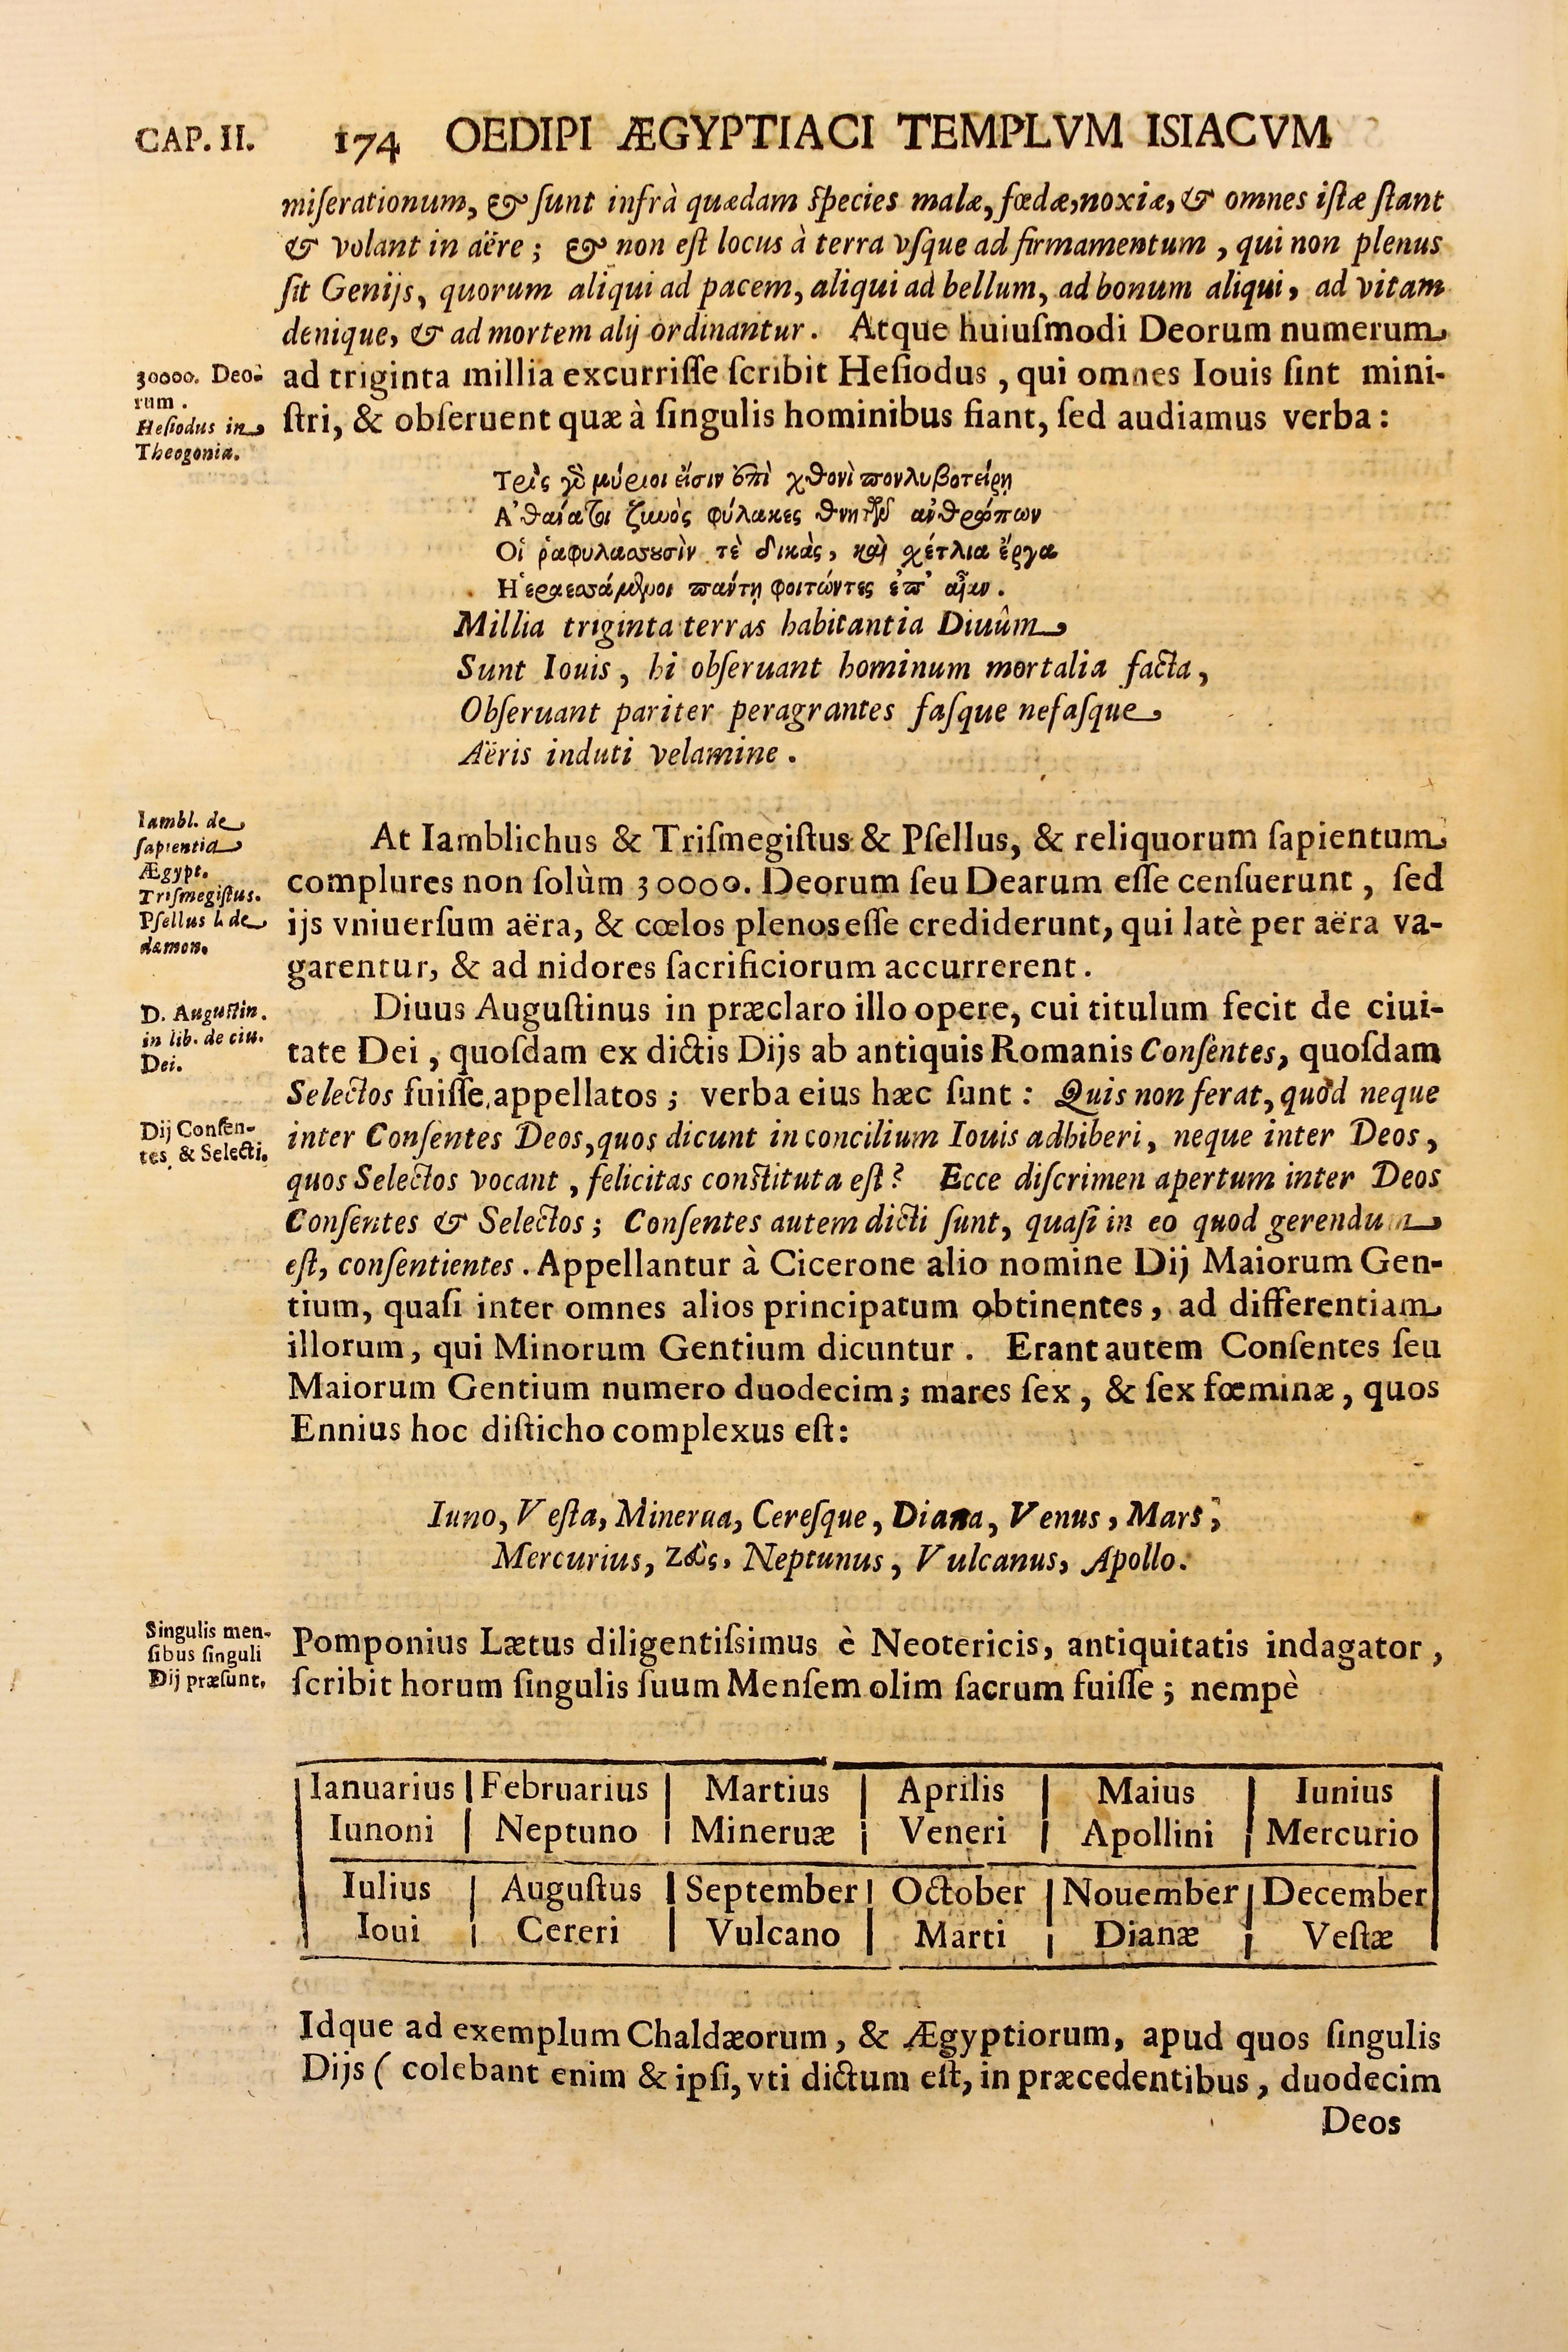 CAP. II. 174 OEDIPI ÆGYPTIACI TEMPLVM ISIACVM
miſerationum, & ſunt infrà quædam ſpecies malæ, fœdæ, noxiæ, & omnes iſtæ ſtant
& volant in aëre; & non eſt locus à terra vſque ad firmamentum, qui non plenus
ſit Genijs, quorum aliqui ad pacem, aliqui ad bellum, ad bonum aliqui, ad vitam
denique, & ad mortem alij ordinantur. Atque huiuſmodi Deorum numerum
ad triginta millia excurriſſe ſcribit Heſiodus, qui omnes Iouis ſint mini-
ſtri, & obſeruent quæ à ſingulis hominibus fiant, ſed audiamus verba:
30000. Deo-
rum.
Heſiodus in
Theogonia.
Τρὶς γὸ μύριοι εἴσιν ἐπὶ χθονὶ πονλυβοτείρῃ
φύλακες θνητῶν ἀνθρώπων
τὲ δικὰς, καὶ χέτλια ἔργα
πάντῃ φοιτώντες ἐπ'
Millia triginta terras habitantia Diuûm
Sunt Iouis, hi obſeruant hominum mortalia facta,
Obſeruant pariter peragrantes faſque nefaſque
Aëris induti velamine.
Iambl. de
ſapientia
Ægypt.
Triſmegiſtus.
Pſellus l. de
dæmon.
At Iamblichus & Triſmegiſtus & Pſellus, & reliquorum ſapientum
complures non ſolùm 30000. Deorum ſeu Dearum eſſe cenſuerunt, ſed
ijs vniuerſum aëra, & cœlos plenos eſſe crediderunt, qui latè per aëra va-
garentur, & ad nidores ſacrificiorum accurrerent.
D. Auguſtin.
in lib. de ciu.
Dei.
Diuus Auguſtinus in præclaro illo opere, cui titulum fecit de ciui-
tate Dei, quoſdam ex dictis Dijs ab antiquis Romanis Conſentes, quoſdam
Selectos fuiſſe appellatos; verba eius hæc ſunt: Quis non ferat, quòd neque
Dij Conſen-
tes & Selecti.
inter Conſentes Deos, quos dicunt in concilium Iouis adhiberi, neque inter Deos,
quos Selectos vocant, felicitas conſtituta eſt? Ecce diſcrimen apertum inter Deos
Conſentes & Selectos; Conſentes autem dicti ſunt, quaſi in eo quod gerendum
eſt, conſentientes. Appellantur à Cicerone alio nomine Dij Maiorum Gen-
tium, quaſi inter omnes alios principatum obtinentes, ad differentiam
illorum, qui Minorum Gentium dicuntur. Erant autem Conſentes ſeu
Maiorum Gentium numero duodecim; mares ſex, & ſex fœminæ, quos
Ennius hoc diſticho complexus eſt:
Iuno, Veſta, Minerua, Cereſque, Diana, Venus, Mars,
Mercurius, Ζεὺς, Neptunus, Vulcanus, Apollo.
Singulis men-
ſibus ſinguli
Dij præſunt.
Pomponius Lætus diligentiſsimus è Neotericis, antiquitatis indagator,
ſcribit horum ſingulis ſuum Menſem olim ſacrum fuiſſe; nempè
Ianuarius Februarius Martius Aprilis Maius Iunius
Iunoni Neptuno Mineruæ Veneri Apollini Mercurio
Iulius Auguſtus September October Nouember December
Ioui Cereri Vulcano Marti Dianæ Veſtæ
Idque ad exemplum Chaldæorum, & Ægyptiorum, apud quos ſingulis
Dijs ( colebant enim & ipſi, vti dictum eſt, in præcedentibus, duodecim
Deos